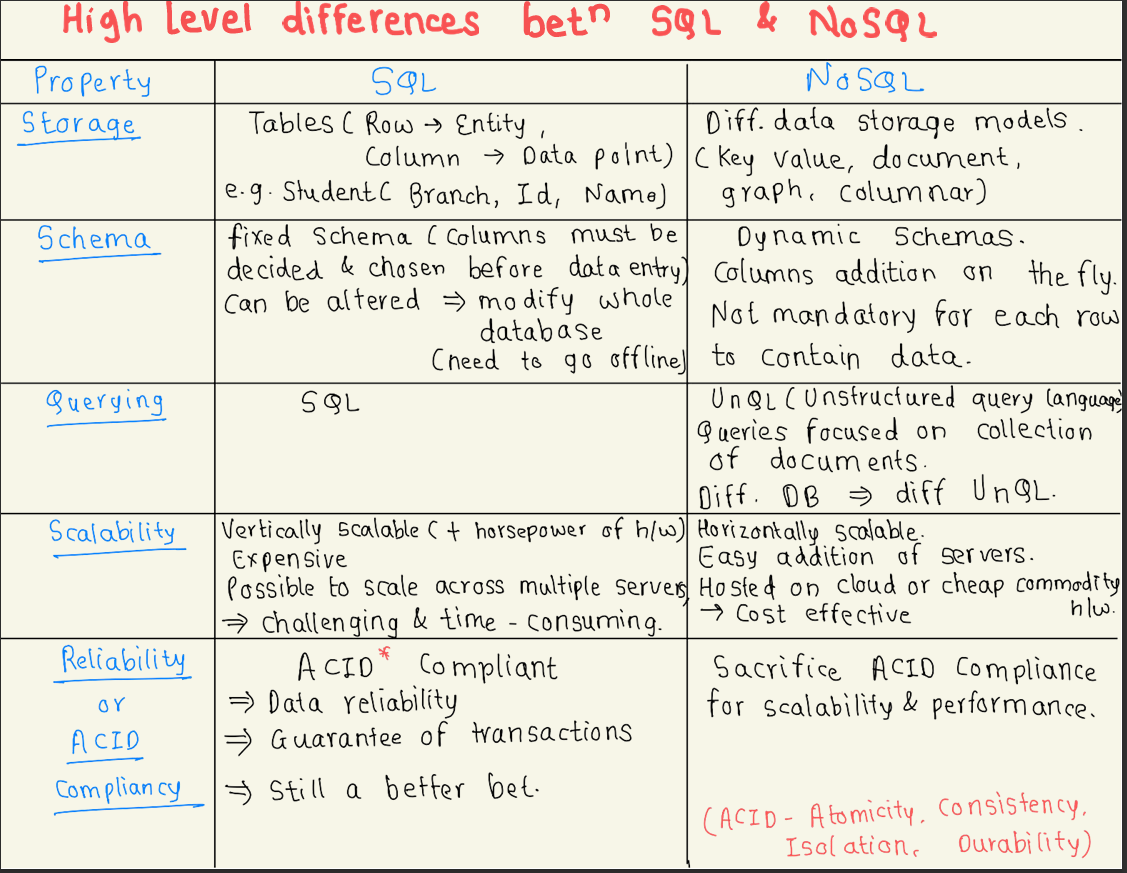 High Level differences betn SQL & NoSQL
Property
SQL
NoSQL
Storage
Tables ( Row → Entity ,
Column → Data point)
e.g. Student ( Branch, Id, Name)
Diff. data storage models.
( Key value, document,
graph, columnar)
Schema
fixed Schema ( Columns must be
decided & chosen before data entry)
Can be altered ⇒ modify whole
database
(need to go offline)
Dynamic Schemas.
Columns addition on the fly.
Not mandatory for each row
to contain data.
Querying
SQL
UnQL ( Unstructured query language)
Queries focused on collection
of documents.
Diff. DB ⇒ diff UnQL.
Scalability
Vertically scalable ( + horsepower of h/w)
Expensive
Possible to scale across multiple servers,
⇒ challenging & time - consuming.
Horizontally scalable.
Easy addition of servers.
Hosted on cloud or cheap commodity
h/w.
→ Cost effective
Reliability
or
ACID
Compliancy
ACID* Compliant
⇒ Data reliability
⇒ Guarantee of transactions
⇒ Still a better bet.
Sacrifice ACID Compliance
for scalability & performance.
(ACID - Atomicity, Consistency,
Isolation, Durability)